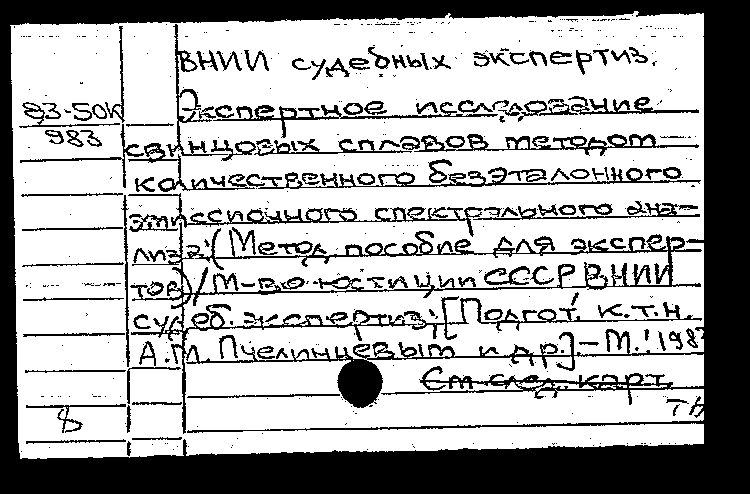 ВНИИ судебных экспертиз.
83-50К
983
Экспертное исследование
свинцовых сплавов методом
количественного безэталонного
эмиссионного спектрального ана-
лиза: (Метод. пособие для экспер-
тов) / М-во юстиции СССР ВНИИ
судеб. экспертиз; [Подгот. к.т.н.
А.М. Пчелинцевым и др.]. – М.: 1983
См след. карт.
8